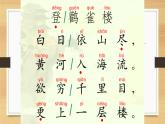 dēng guàn què lóu
登鹳雀楼
bái rì yī shān jìn
白日依山尽，
huáng hé rù hǎi liú
黄河入海流。
yù qióng qiān lǐ mù
欲穷千里目，
gèng shàng céng lóu
更上一层楼。